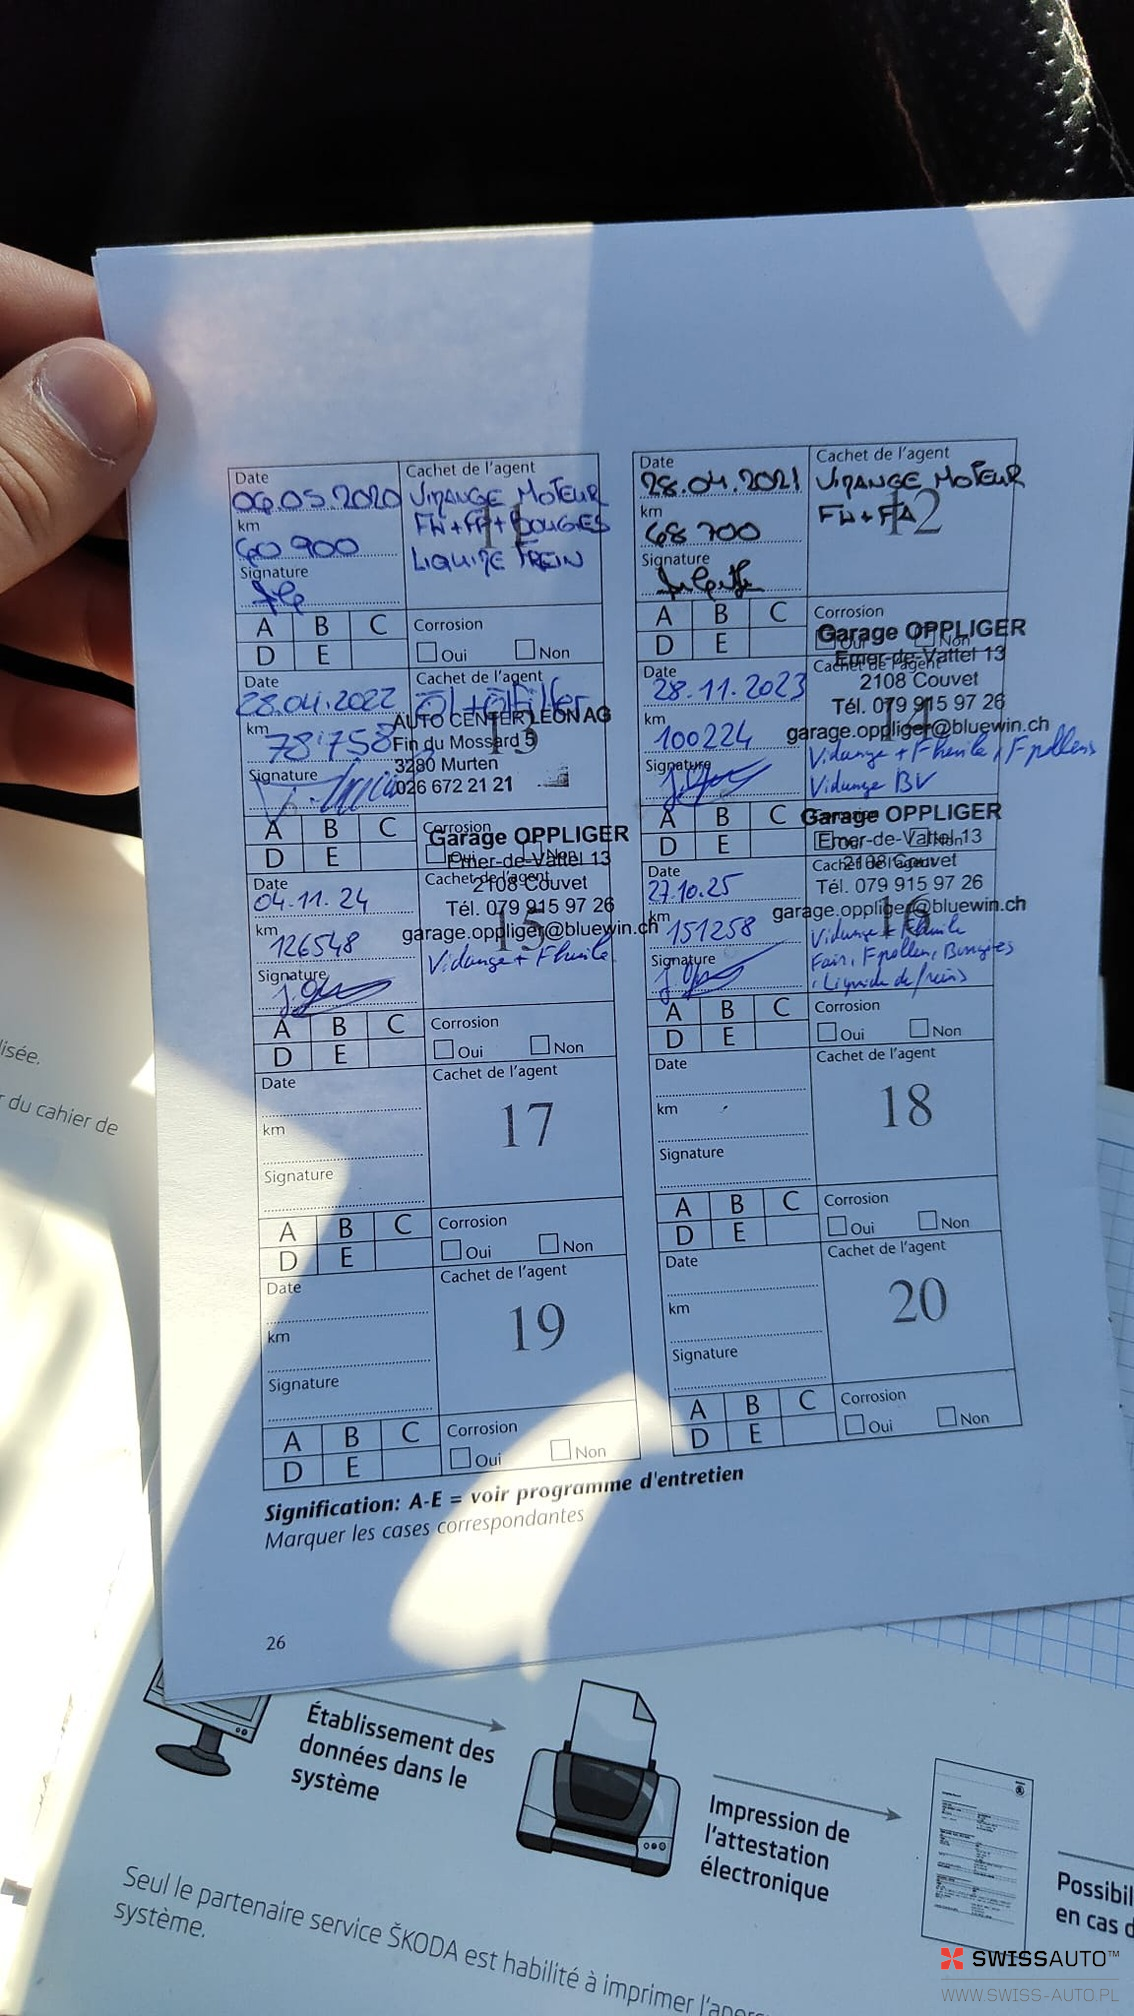 Date
06.05.2020
km
60 900
Signature
Cachet de l'agent
VIDANGE MOTEUR
FH+FP+BOUGIES
LIQUIDE FREIN
11
A B C
D E
Corrosion
Oui Non
Date
28.04.2021
km
68 700
Signature
Cachet de l'agent
VIDANGE MOTEUR
FH+FA
12
A B C
D E
Corrosion
Oui Non
Date
28.04.2022
km
78'758
Signature
Cachet de l'agent
Öl+Ölfilter
13
AUTO CENTER LEON AG
Fin du Mossard 5
3280 Murten
026 672 21 21
A B C
D E
Corrosion
Oui Non
Date
28.11.2023
km
100224
Signature
Garage OPPLIGER
Emer-de-Vattel 13
Cachet de l'agent
2108 Couvet
Tél. 079 915 97 26
garage.oppliger@bluewin.ch
14
Vidange + F huile, F pollens
Vidange BV
A B C
D E
Corrosion
Oui Non
Date
04.11.24
km
126548
Signature
Garage OPPLIGER
Emer-de-Vattel 13
Cachet de l'agent
2108 Couvet
Tél. 079 915 97 26
garage.oppliger@bluewin.ch
15
Vidange + F huile
A B C
D E
Corrosion
Oui Non
Date
27.10.25
km
151258
Signature
Garage OPPLIGER
Emer-de-Vattel 13
Cachet de l'agent
2108 Couvet
Tél. 079 915 97 26
garage.oppliger@bluewin.ch
16
Vidange + F huile
F air, F pollen, Bougies
, Liquide de freins
A B C
D E
Corrosion
Oui Non
Date
km
Signature
Cachet de l'agent
17
A B C
D E
Corrosion
Oui Non
Date
km
Signature
Cachet de l'agent
18
A B C
D E
Corrosion
Oui Non
Date
km
Signature
Cachet de l'agent
19
A B C
D E
Corrosion
Oui Non
Date
km
Signature
Cachet de l'agent
20
A B C
D E
Corrosion
Oui Non
Signification: A-E = voir programme d'entretien
Marquer les cases correspondantes
26
lisée.
r du cahier de
Établissement des
données dans le
système
Impression de
l'attestation
électronique
Possibil
en cas d
Seul le partenaire service ŠKODA est habilité à imprimer l'aper
système.
SWISSAUTO™
WWW.SWISS-AUTO.PL